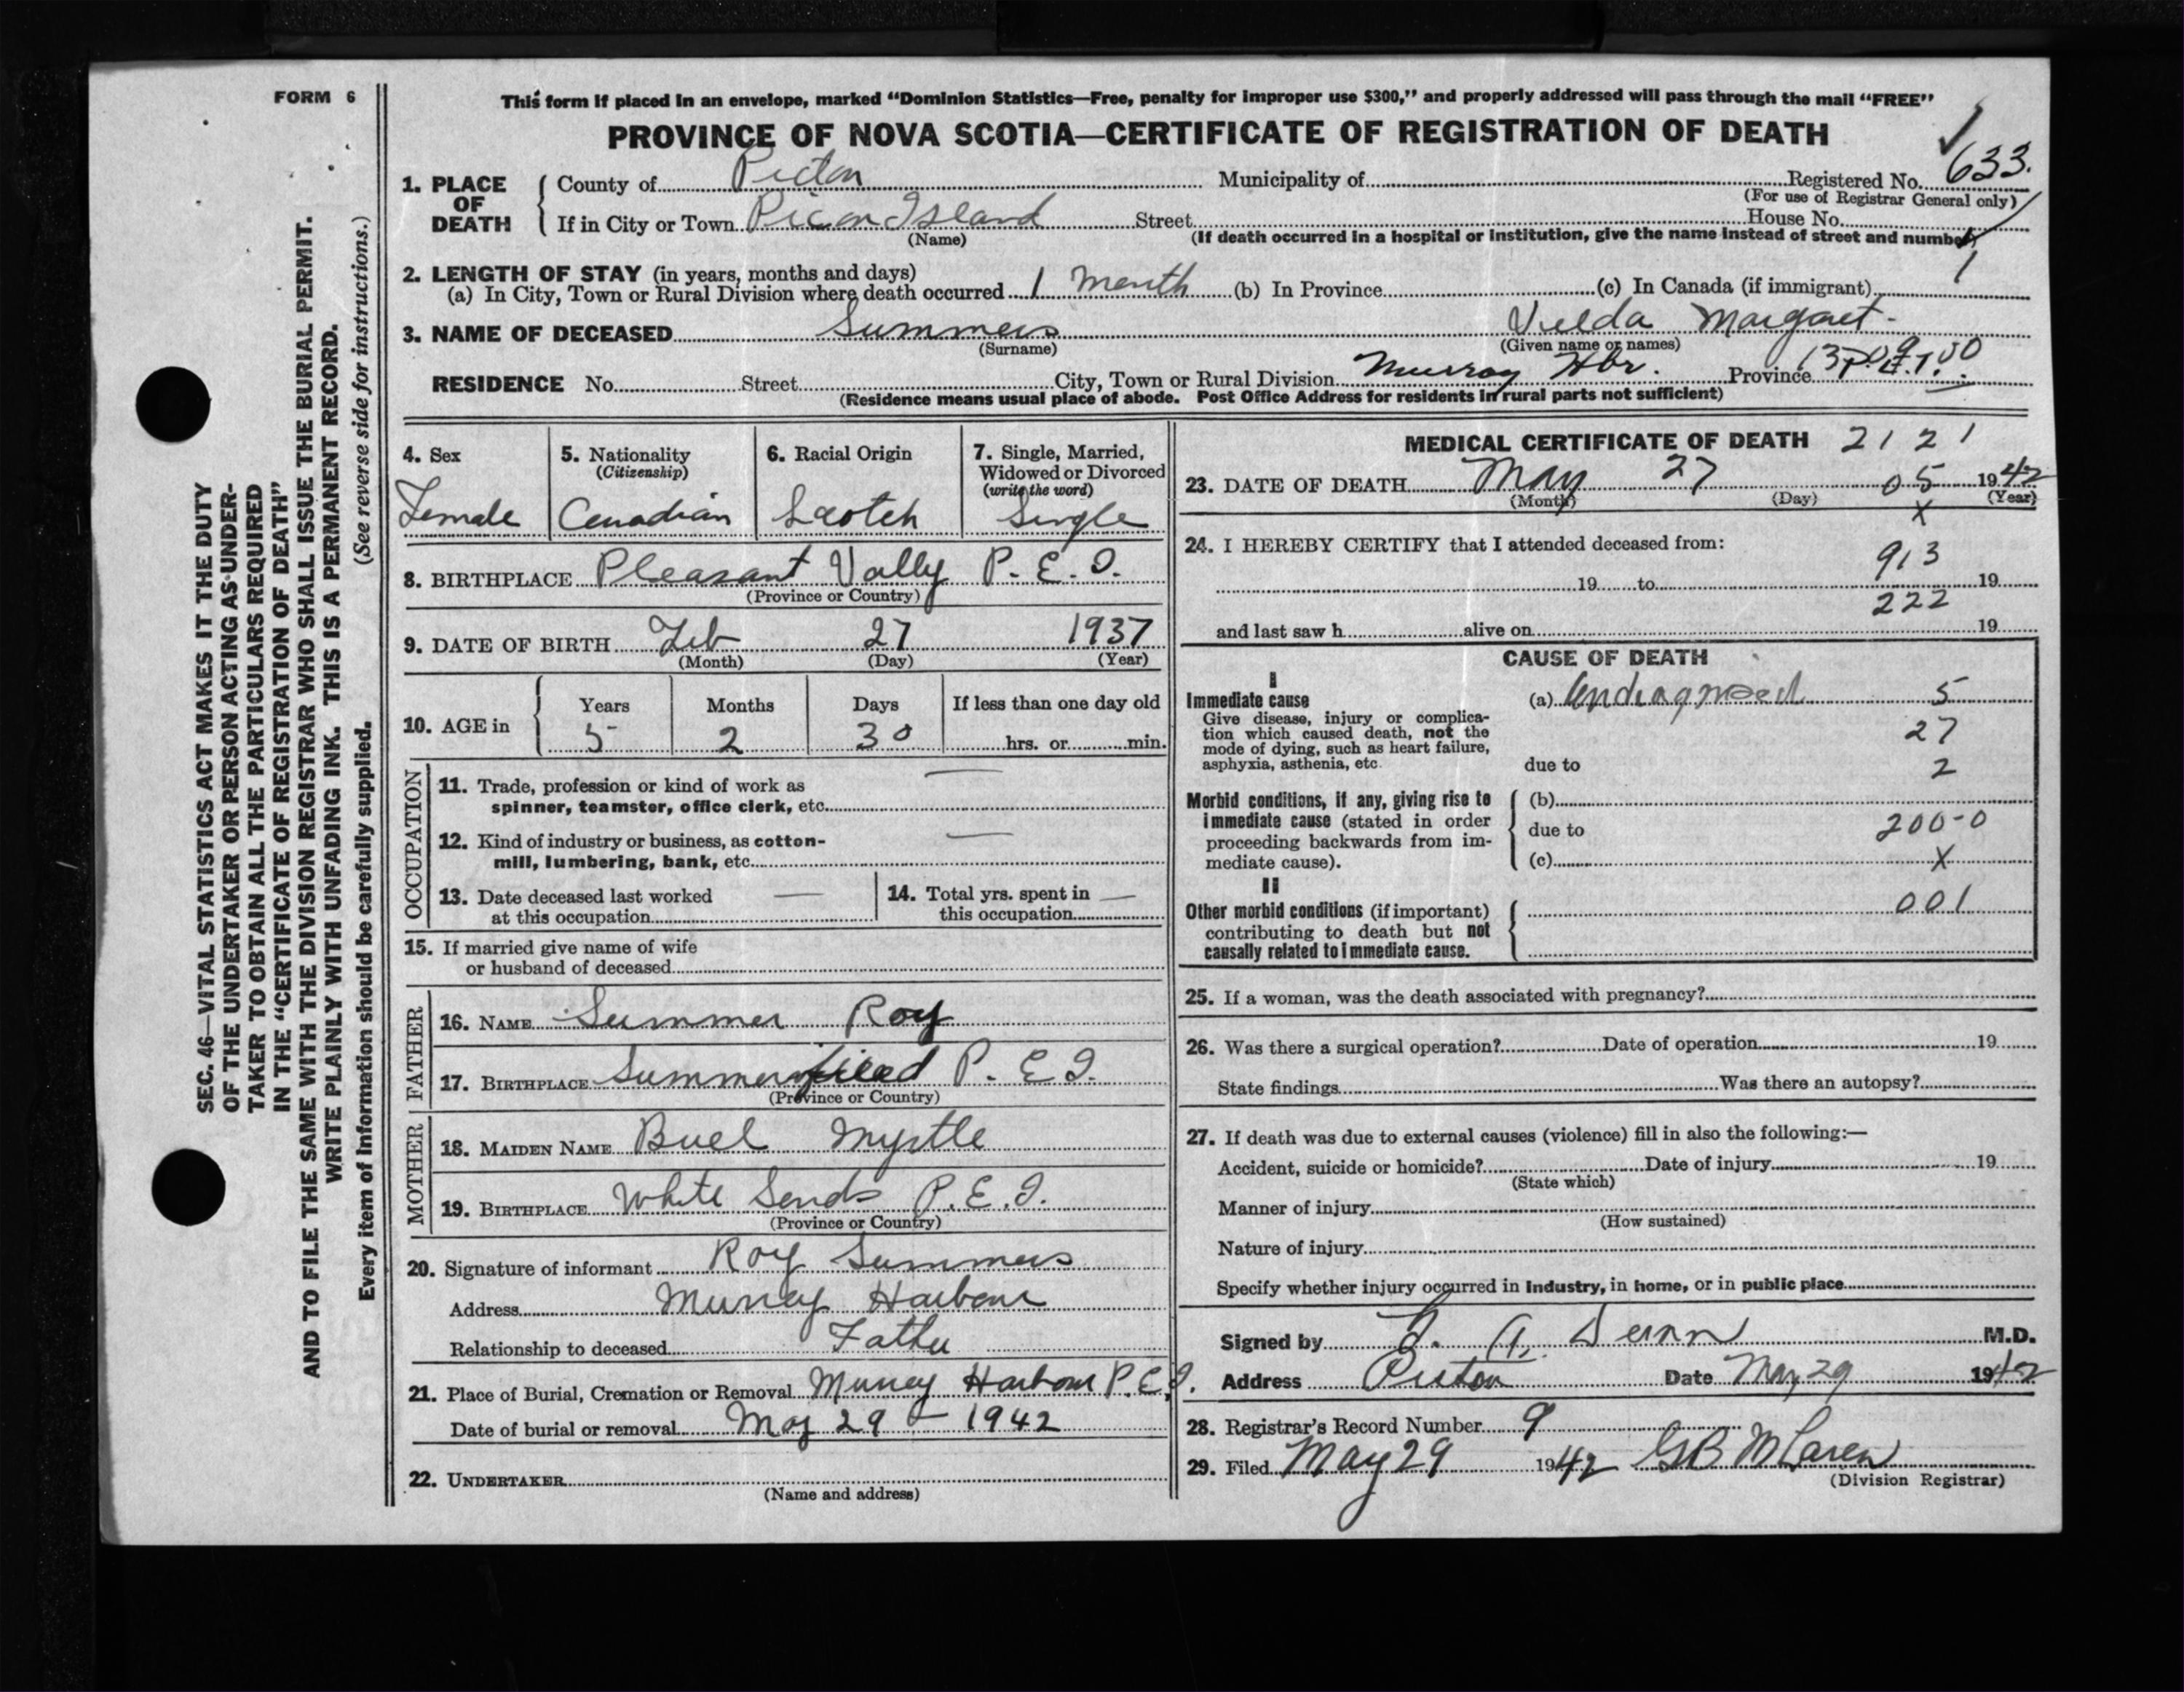 FORM 6
This form if placed in an envelope, marked "Dominion Statistics—Free, penalty for improper use $300," and properly addressed will pass through the mail "FREE"
PROVINCE OF NOVA SCOTIA—CERTIFICATE OF REGISTRATION OF DEATH
1. PLACE OF DEATH
County of Pictou Municipality of Registered No. 633.
(For use of Registrar General only)
If in City or Town Island Street House No.
(Name) (If death occurred in a hospital or institution, give the name instead of street and number)
1
2. LENGTH OF STAY (in years, months and days)
(a) In City, Town or Rural Division where death occurred 1 Month (b) In Province (c) In Canada (if immigrant)
3. NAME OF DECEASED Summers Margaret
(Surname) (Given name or names)
RESIDENCE No. Street City, Town or Rural Division Murray Hbr. Province P.E.I.
(Residence means usual place of abode. Post Office Address for residents in rural parts not sufficient)
4. Sex
Female
5. Nationality
(Citizenship)
Canadian
6. Racial Origin
Scotch
7. Single, Married,
Widowed or Divorced
(write the word)
Single
8. BIRTHPLACE Pleasant Vally P. E. I.
(Province or Country)
9. DATE OF BIRTH Feb 27 1937
(Month) (Day) (Year)
10. AGE in
Years Months Days If less than one day old
5 2 30 hrs. or min.
OCCUPATION
11. Trade, profession or kind of work as
spinner, teamster, office clerk, etc. —
12. Kind of industry or business, as cotton-
mill, lumbering, bank, etc. —
13. Date deceased last worked
at this occupation —
14. Total yrs. spent in
this occupation —
15. If married give name of wife
or husband of deceased
FATHER
16. NAME Summer Roy
17. BIRTHPLACE P. E I.
(Province or Country)
MOTHER
18. MAIDEN NAME Buel Myrtle
19. BIRTHPLACE White Sands P.E.I.
(Province or Country)
20. Signature of informant Roy Summers
Address Murray Harbour
Relationship to deceased Father
21. Place of Burial, Cremation or Removal Murray Harbour P.E.I.
Date of burial or removal May 29 – 1942
22. UNDERTAKER
(Name and address)
MEDICAL CERTIFICATE OF DEATH 2121
23. DATE OF DEATH May 27 05 1942
(Month) (Day) (Year)
X
24. I HEREBY CERTIFY that I attended deceased from:
913
19 to 19
222
and last saw h alive on 19
CAUSE OF DEATH
I
Immediate cause
Give disease, injury or complica-
tion which caused death, not the
mode of dying, such as heart failure,
asphyxia, asthenia, etc.
(a) Undiagnosed 5
27
due to 2
Morbid conditions, if any, giving rise to
immediate cause (stated in order
proceeding backwards from im-
mediate cause).
(b)
due to 200-0
(c) X
II
Other morbid conditions (if important)
contributing to death but not
causally related to immediate cause.
001
25. If a woman, was the death associated with pregnancy?
26. Was there a surgical operation? Date of operation 19
State findings Was there an autopsy?
27. If death was due to external causes (violence) fill in also the following:—
Accident, suicide or homicide? Date of injury 19
(State which)
Manner of injury
(How sustained)
Nature of injury
Specify whether injury occurred in industry, in home, or in public place
Signed by A. Dunn M.D.
Address Pictou Date May 29 1942
28. Registrar's Record Number 9
29. Filed May 29 1942 GB McLaren
(Division Registrar)
SEC. 46—VITAL STATISTICS ACT MAKES IT THE DUTY
OF THE UNDERTAKER OR PERSON ACTING AS UNDER-
TAKER TO OBTAIN ALL THE PARTICULARS REQUIRED
IN THE "CERTIFICATE OF REGISTRATION OF DEATH"
AND TO FILE THE SAME WITH THE DIVISION REGISTRAR WHO SHALL ISSUE THE BURIAL PERMIT.
WRITE PLAINLY WITH UNFADING INK. THIS IS A PERMANENT RECORD.
Every item of information should be carefully supplied. (See reverse side for instructions.)